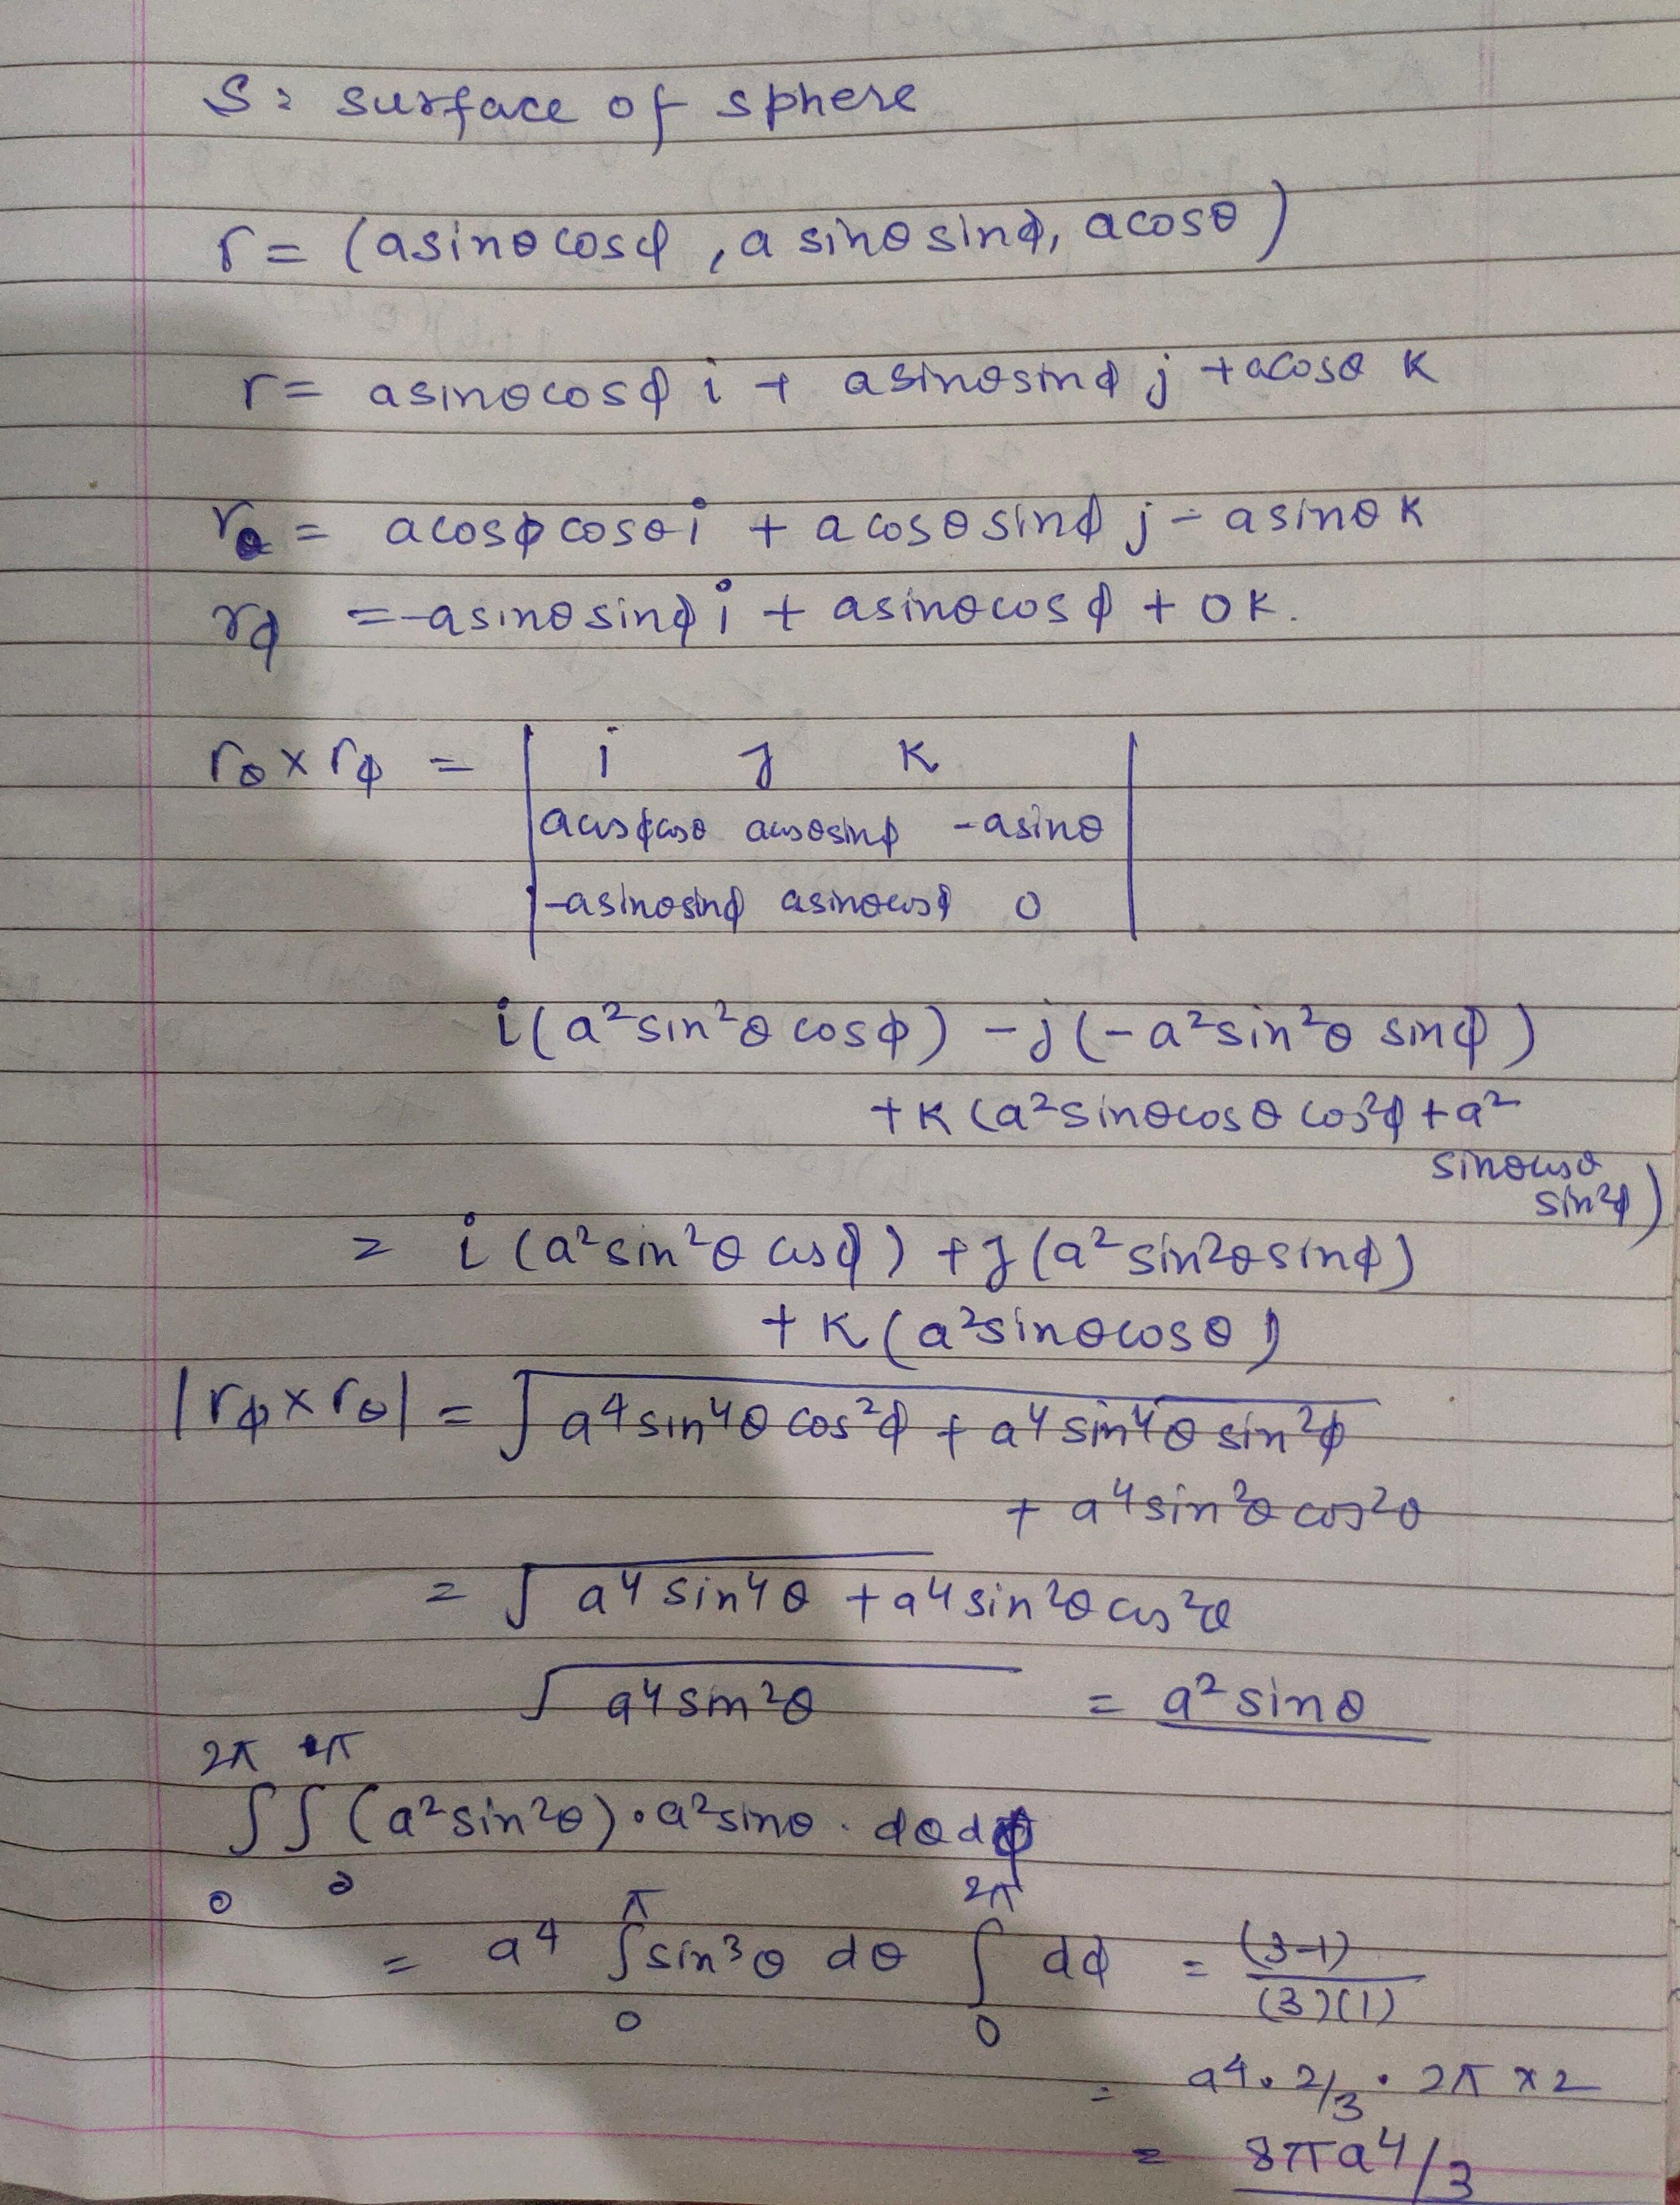 S: surface of sphere
r = (asinθcosφ, a sinθsinφ, acosθ)
r = asinθcosφ i + asinθsinφ j + acosθ k
rθ = acosφcosθi + acosθsinφ j - asinθ k
rφ = -asinθsinφ i + asinθcosφ + 0k.
rθ × rφ = | i j k |
| acosφcosθ acosθsinφ -asinθ |
| -asinθsinφ asinθcosφ 0 |
i(a²sin²θ cosφ) - j(-a²sin²θ sinφ)
+ k(a²sinθcosθ cos²φ + a²
sinθcosθ
sin²φ)
= i(a²sin²θ cosφ) + j(a²sin²θsinφ)
+ k(a²sinθcosθ)
|rφ × rθ| = √a⁴sin⁴θ cos²φ + a⁴sin⁴θ sin²φ
+ a⁴sin²θ cos²θ
= √a⁴sin⁴θ + a⁴sin²θcos²θ
√a⁴sin²θ = a²sinθ
2π π
∫∫(a²sin²θ)·a²sinθ. dθdφ
0 0
π 2π
= a⁴ ∫sin³θ dθ ∫ dφ = (3-1)
0 0 (3)(1)
= a⁴. 2/3 · 2π × 2
= 8πa⁴/3